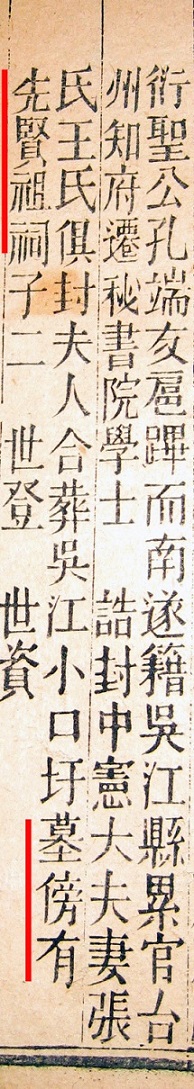 衍聖公孔端友扈蹕而南遂籍吳江縣累官台
州知府遷秘書院學士　誥封中憲大夫妻張
氏王氏俱封夫人合葬吳江小口圩墓傍有
先賢祖祠子二　世登　世資